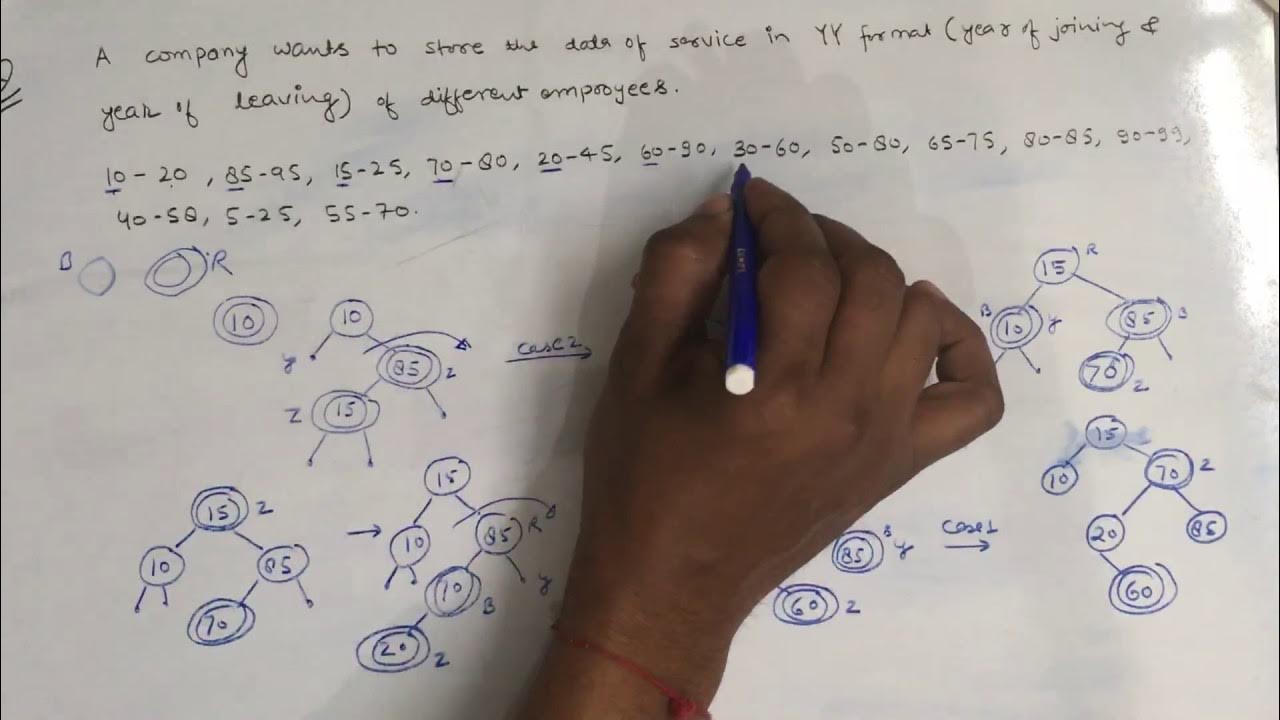 A company wants to store the data of service in YY format (year of joining &
year of leaving) of different employees.
10-20, 85-95, 15-25, 70-80, 20-45, 60-90, 30-60, 50-80, 65-75, 80-85, 90-99,
40-50, 5-25, 55-70.
B R
10
10
y
85 z
z 15
case 2
R
15
B 10 y 85 B
70 z
15 z
10 85
70
15
10 85 R
y
70 B
20 z
85 B y
60 z
case 1
15
10 70 z
20 85
60